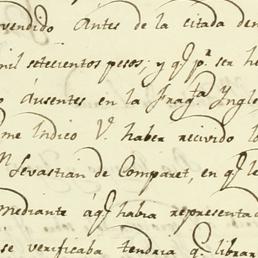 vendido Antes de la citada den
mil setecientos pesos; y q.e p.r ser he
ó ausentes en la Frag.ta Yngle
me Indico V. haber recivido lo
n Sevastian de Comparet, en q.e le
mediante á q.e habia representad
se verificaba tendria q.e librar